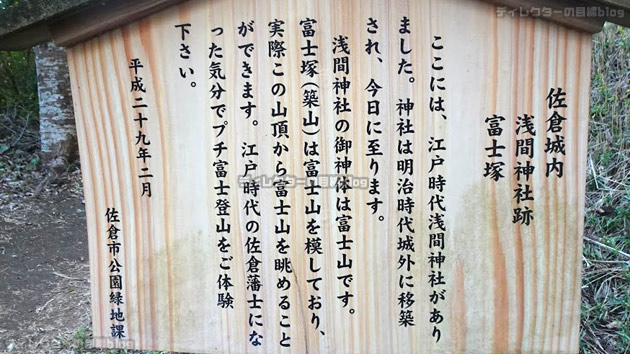 佐倉城内
浅間神社跡
富士塚
ここには、江戸時代浅間神社があり
ました。神社は明治時代城外に移築
され、今日に至ります。
浅間神社の御神体は富士山です。
富士塚(築山)は富士山を模しており、
実際この山頂から富士山を眺めること
ができます。江戸時代の佐倉藩士にな
った気分でプチ富士登山をご体験
下さい。
平成二十九年二月
佐倉市公園緑地課
ディレクターの目線blog
ディレクターの目線blog
ディレクターの目線blog